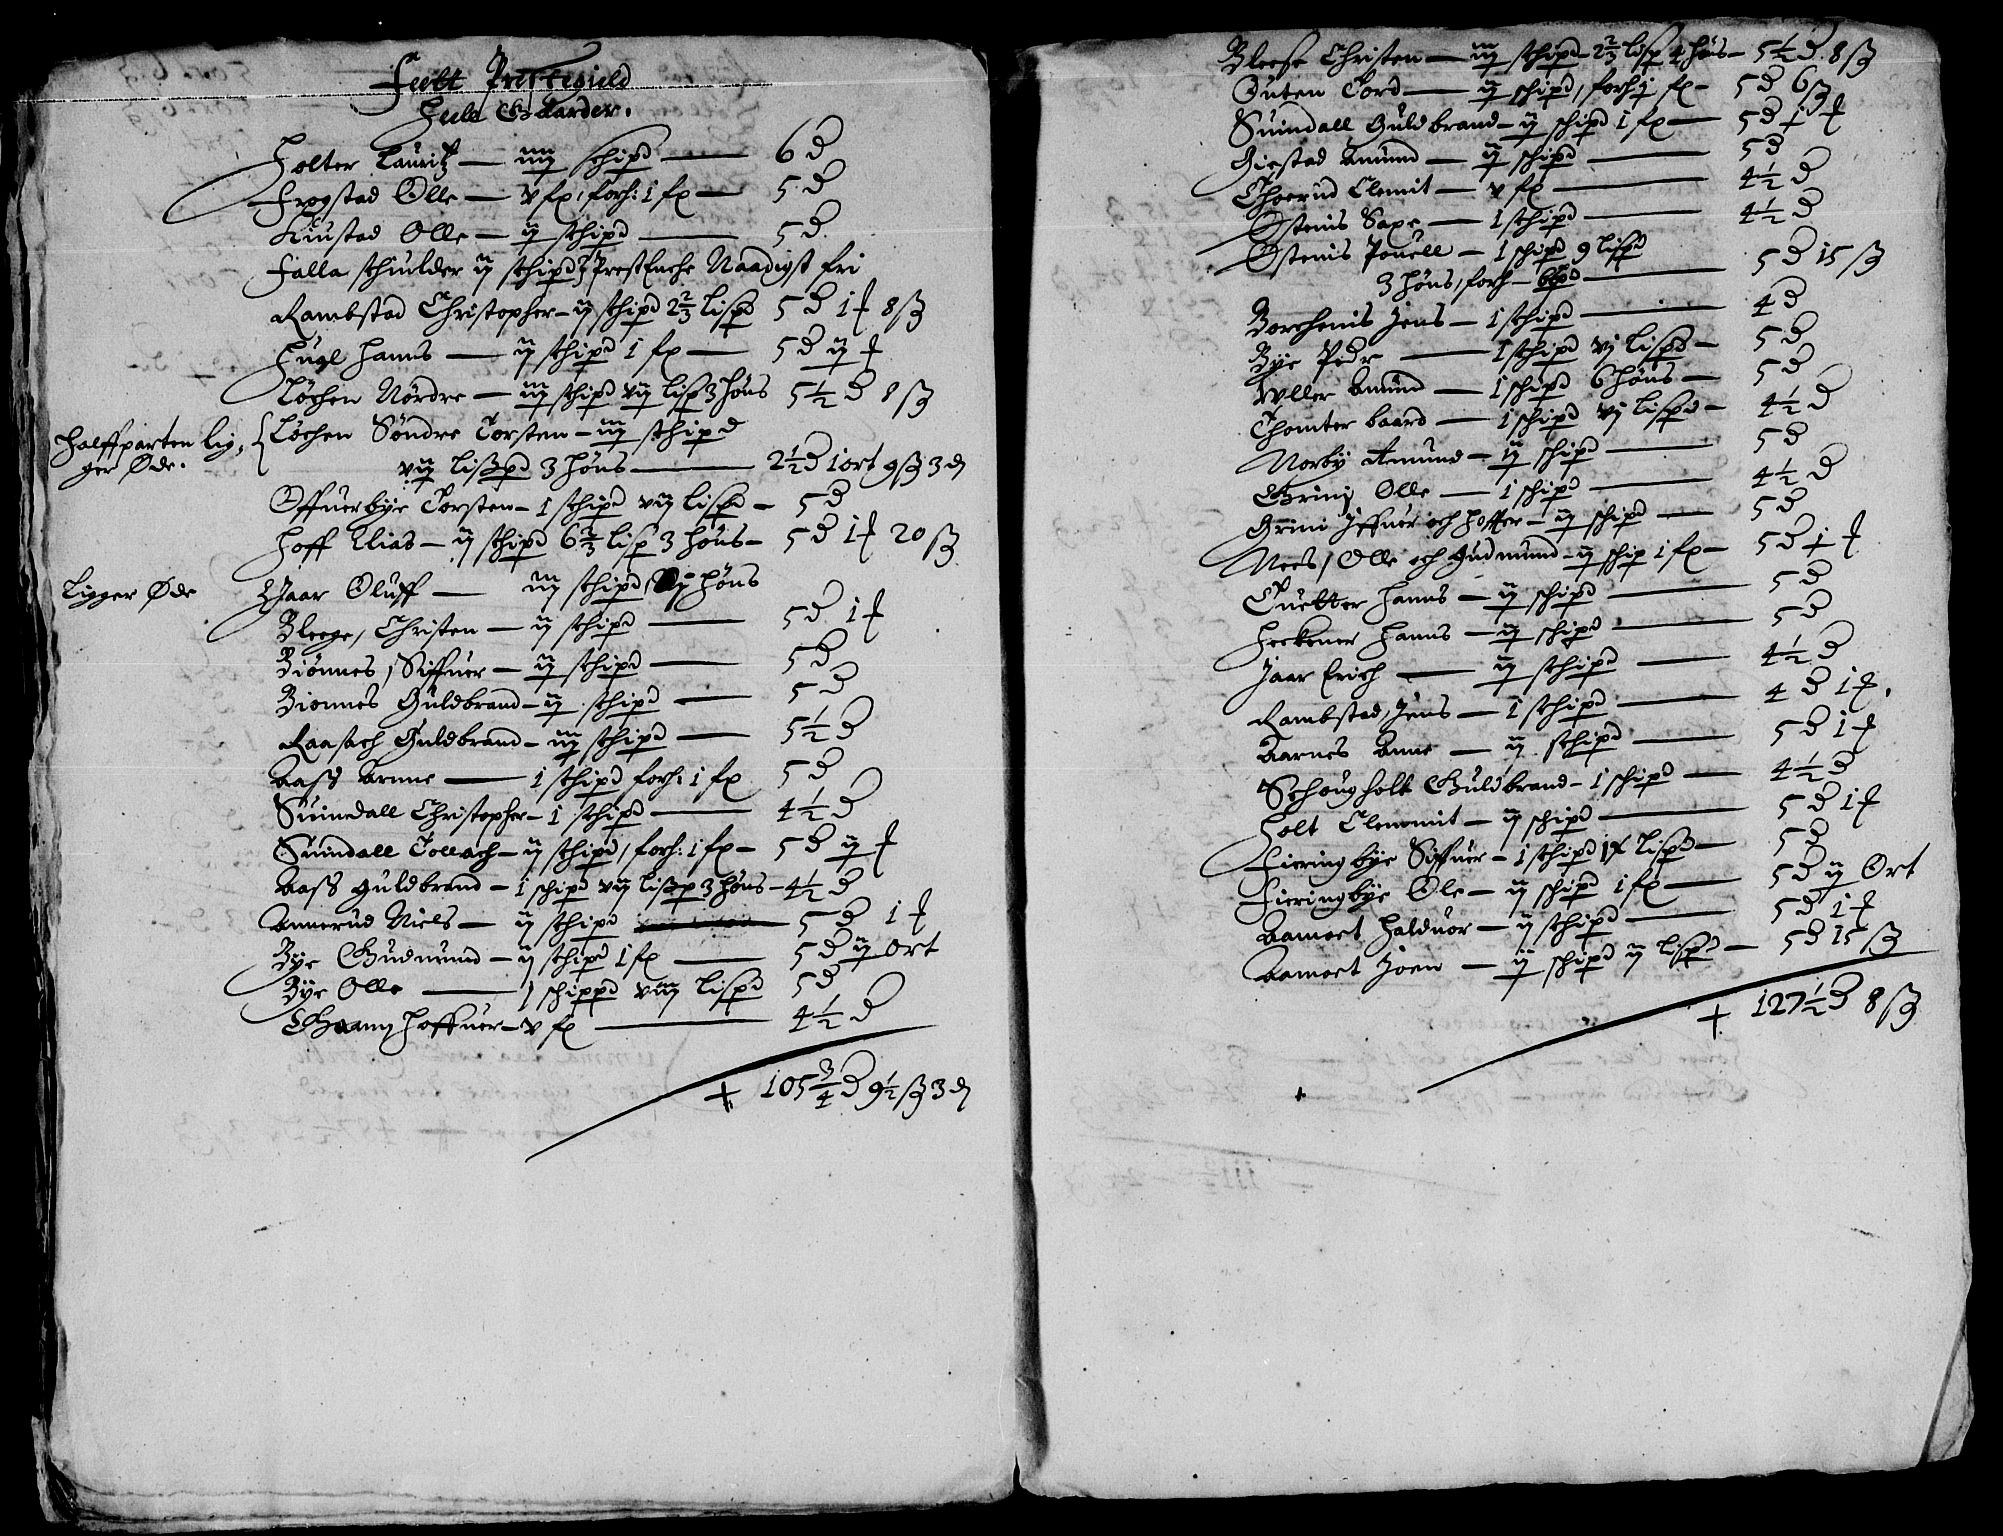 Feett Prestegield
Hele Gaarder.
Holter Lauritz — iiij schipd — 6 d
Frogstad Olle — v fx, forh: 1 fx — 5 d
Kiustad Olle — ij schipd — 5 d
Falla schiulder ij schipd Prest Enche Naadigst fri
Rambstad Christopher — ij schipd 2 2/3 lispd 5 d 1 f 8 ß
Fugl Hanns — ij schipd 1 fx — 5 d ij f
Løchen Nördre — iij schipd vij lisp 3 höns 5 1/2 d 8 ß
Halffparten lig- ger Øde. { Løchen Söndre Torsten — iij schipd
viij lißpd 3 höns — 2 1/2 d 1 ort 9 ß 3 d
Offuerbye Torsten — 1 schipd viij lispd — 5 d
Hoff Elias — ij schipd 6 2/3 lisp 3 höns — 5 d 1 f 20 ß
Ligger Øde Jaar Oluff — iij schipd, iij höns
Bleege, Christen — ij schipd — 5 d 1 f
Biönnes, Siffuer — ij schipd — 5 d
Bionnes Guldbrand — ij schipd — 5 d
Raasach Guldbrand — iij schipd — 5 1/2 d
Aass Arnne — 1 schipd forh: 1 fx 5 d
Suindall Christopher — 1 schipd — 4 1/2 d
Suindall Tollach — ij schipd, forh: 1 fx — 5 d ij f
Aass Guldbrand — 1 schipd vij lißp 3 höns — 4 1/2 d
Annerud Niels — ij schipd — 5 d 1 f
Bye Gudmund — ij schipd 1 fx — 5 d ij ort
Bye Olle — 1 schippd viij lispd 5 d
Gaang Hoffuer — v fx — 4 1/2 d
+ 105 3/4 d 9 1/2 ß 3 d
Bleege Christen — iij schipd 2 2/3 lisp 4 höns — 5 1/2 d 8 ß
Outen Tord — ij schipd, forh j fx — 5 d 6 ß
Suindall Guldbrand — ij schipd 1 fx — 5 d 1 f
Giestad Amund — ij schipd — 5 d
Thoerud Clemit — v fx — 4 1/2 d
Ostenis Saxe — 1 schipd — 4 1/2 d
Ostenis Pouell — 1 schipd 9 lispd
3 höns, forh — — 5 d 15 ß
Borchenis Jens — 1 schipd — 4 d
Bye Pedr — 1 schipd vj lispd — 5 d
Wller Amund — 1 schipd 6 höns — 5 d
Thomter baard — 1 schipd vj lispd — 4 1/2 d
Norby Amund — ij schipd — 5 d
Grinj Olle — 1 schipd — 4 1/2 d
Grini Jffuer och Hoffer — ij schipd — 5 d
Nees, Olle och Gudmund — ij schip 1 fx — 5 d 1 f
Tuetter Hanns — ij schipd — 5 d
Heckener Hanns — ij schipd — 5 d
Jaar Erich — ij schipd — 4 1/2 d
Rambstad, Jens — 1 schipd — 4 d 1 f.
Aarnes Anne — ij schipd — 5 d 1 f
Schougholt Guldbrand — 1 schipd — 4 1/2 d
Holt Clemmit — ij schipd — 5 d 1 f
Fieringbye Siffuer — 1 schipd ix lispd — 5 d
Fieringbye Ole — ij schipd 1 fx — 5 d ij Ort
Aamoet Halduor — ij schipd — 5 d 1 f
Aamoet Joen — ij schipd ij lispd — 5 d 15 ß
+ 127 1/2 d 8 ß